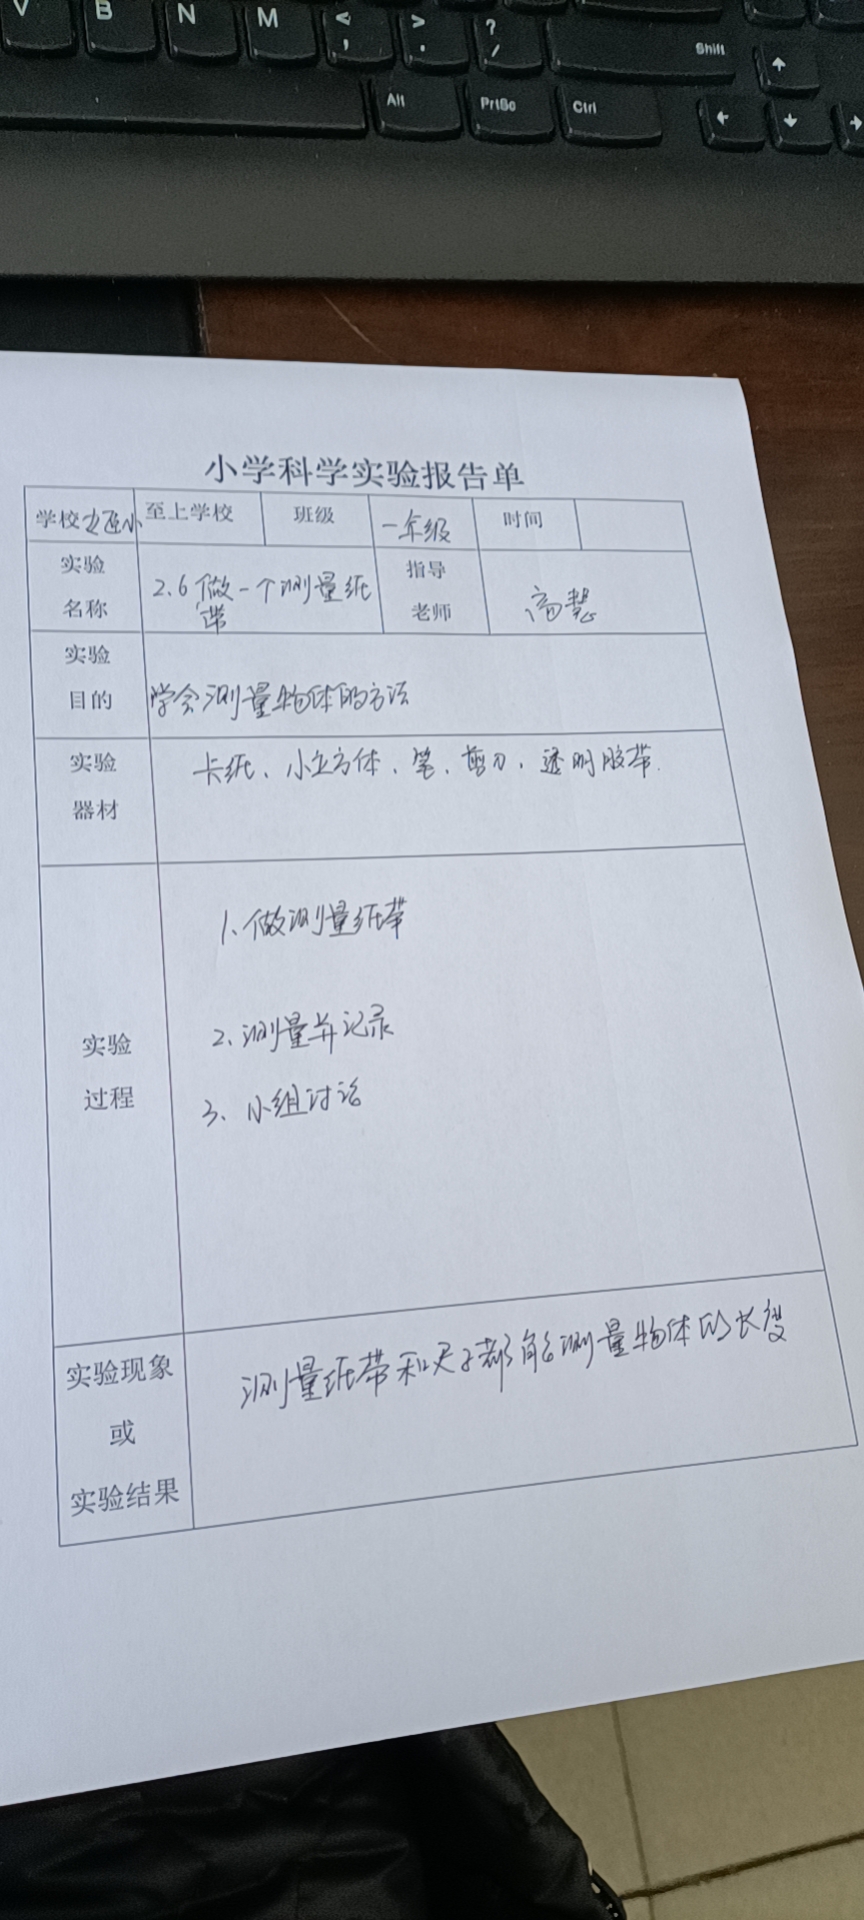 V B N M < , > . ? / Shift
Alt PrtSc Ctrl
小学科学实验报告单
学校 至上学校 班级 一年级 时间
实验名称 2.6 做一个测量纸带 指导老师 高慧
实验目的 学会测量物体的方法
实验器材 卡纸、小立方体、笔、剪刀、透明胶带.
实验过程
1、做测量纸带
2、测量并记录
3、小组讨论
实验现象
或
实验结果
测量纸带和尺子都能测量物体的长度